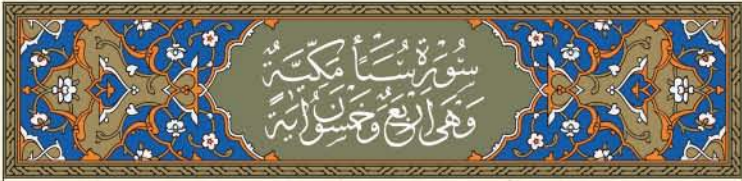 سُورَةُ سَبَأٍ مَكِّيَّةٌ
وَهِىَ اَرْبَعٌ وَخَمْسُونَ اٰيَةً